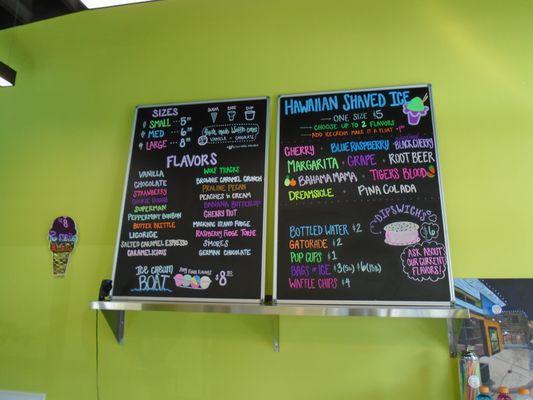 SIZES
SMALL 5
MED 6
LARGE 8
SUGAR CAKE CUP
VANILLA CHOCOLATE
FLAVORS
VANILLA
CHOCOLATE
STRAWBERRY
COOKIE DOUGH
SUPERMAN
PEPPERMINT BONBON
BUTTER BRITTLE
LICORICE
SALTED CARAMEL ESPRESSO
CARAMELICIOUS
WOLF TRACKS
BROWNIE CARAMEL CRUNCH
PRALINE PECAN
PEACHES & CREAM
BANANA BUTTERCUP
CHERRY NUT
RASPBERRY FUDGE TORTE
MACKINAC ISLAND FUDGE
SMORES
GERMAN CHOCOLATE
ICE CREAM BOAT
ANY 4 FLAVORS
$8
HAWAIIAN SHAVED ICE
ONE SIZE $5
CHOOSE UP TO 2 FLAVORS
ADD ICE CREAM MAKE IT A FLOAT +1
CHERRY BLUE RASPBERRY BLACK CHERRY
MARGARITA GRAPE ROOT BEER
BAHAMA MAMA TIGERS BLOOD
DREAMSICLE PINA COLADA
DIPSWICHS
$6
ASK ABOUT OUR CURRENT FLAVORS!
BOTTLED WATER $2
GATORADE $2
PUP CUPS $1
BAGS OF ICE
WAFFLE CHIPS $4
$8